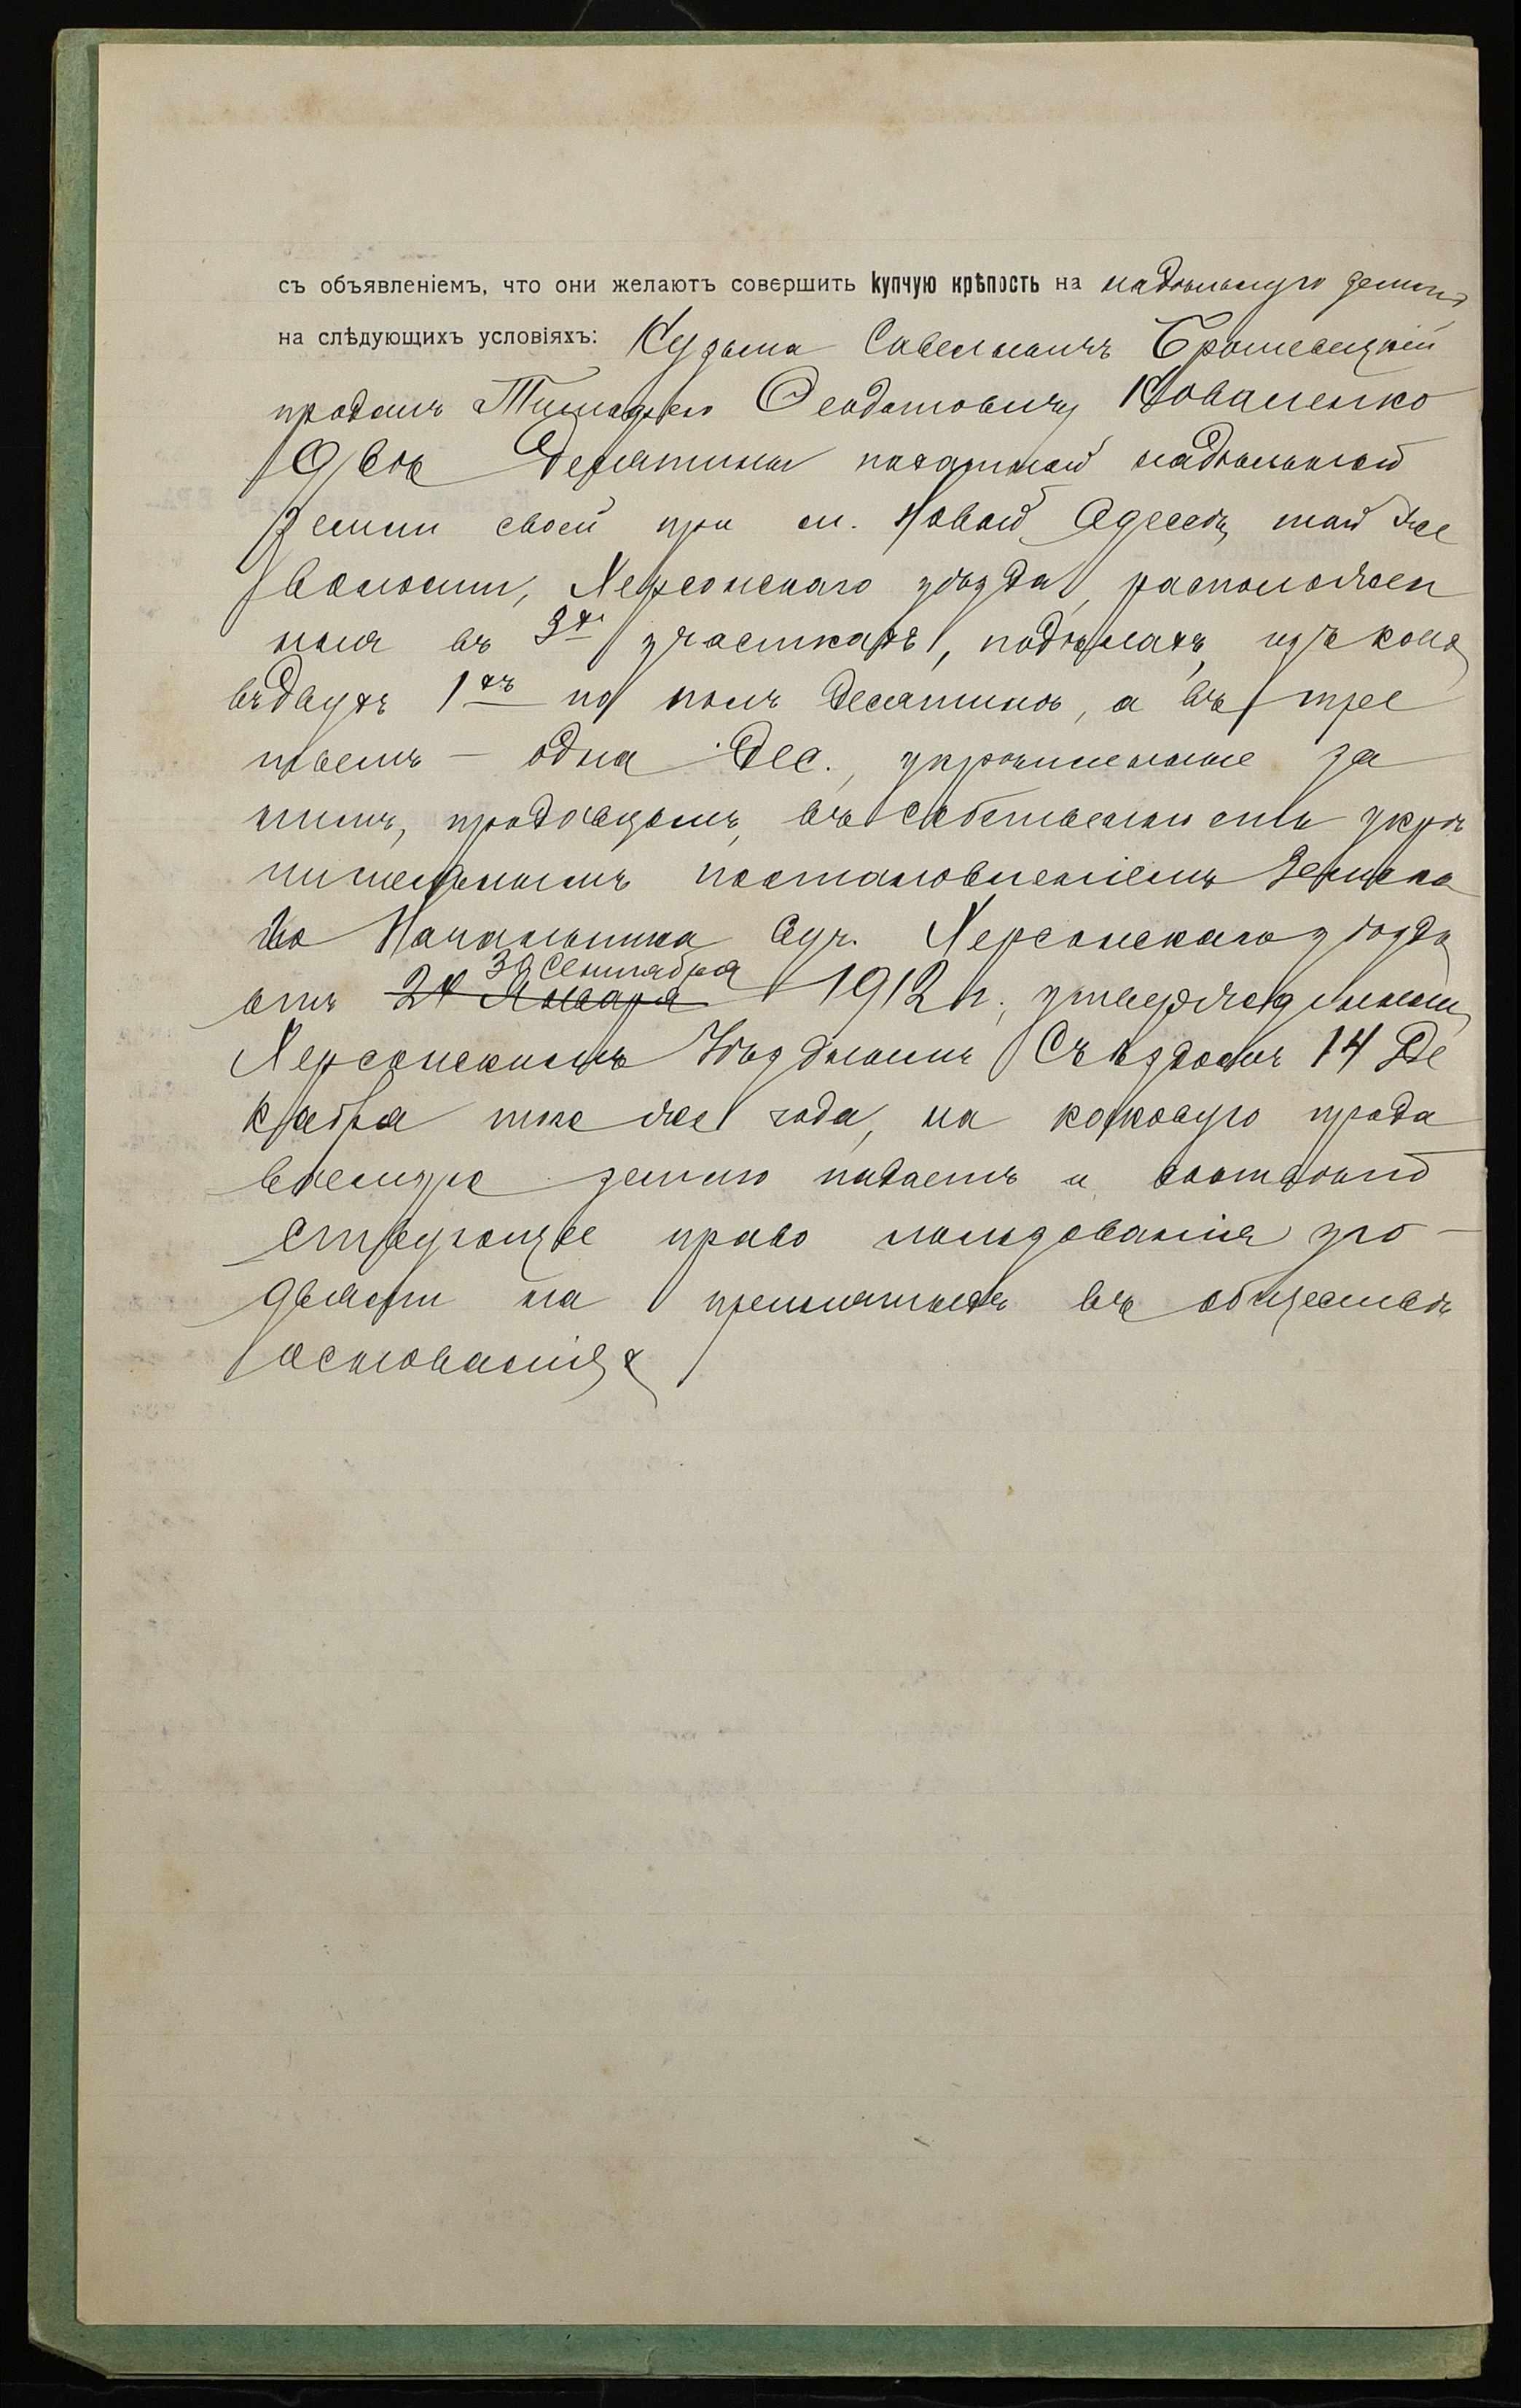 съ объявленіемъ, что они желаютъ совершить купчую крѣпость на надѣльную землю
на слѣдующихъ условіяхъ: Кузьма Савельевичъ
продалъ Тимофею Феодотовичу Коваленко
двѣ десятины пахатной надѣльной
земли своей при м. Новой Одессѣ, той же
волости, Херсонскаго уѣзда, расположен
ныя въ 3хъ участкахъ,
въ двухъ 1хъ по полъ десятинѣ, а въ тре
тьемъ — одна дес., укрѣпленные за
нимъ, продавцомъ, въ собственность укрѣ
пительнымъ постановленіемъ Земска
го Начальника 2 уч. Херсонскаго уѣзда
отъ 24 Января 30 Сентября 1912 г., утвержденнымъ
Херсонскимъ Уѣзднымъ Съѣздомъ 14 Де
кабря того же года, на каковую прода
ваемую землю падаетъ и соотвѣт
ствующее право пользованія уго-
дьями на принятыхъ въ обществѣ
основаніяхъ